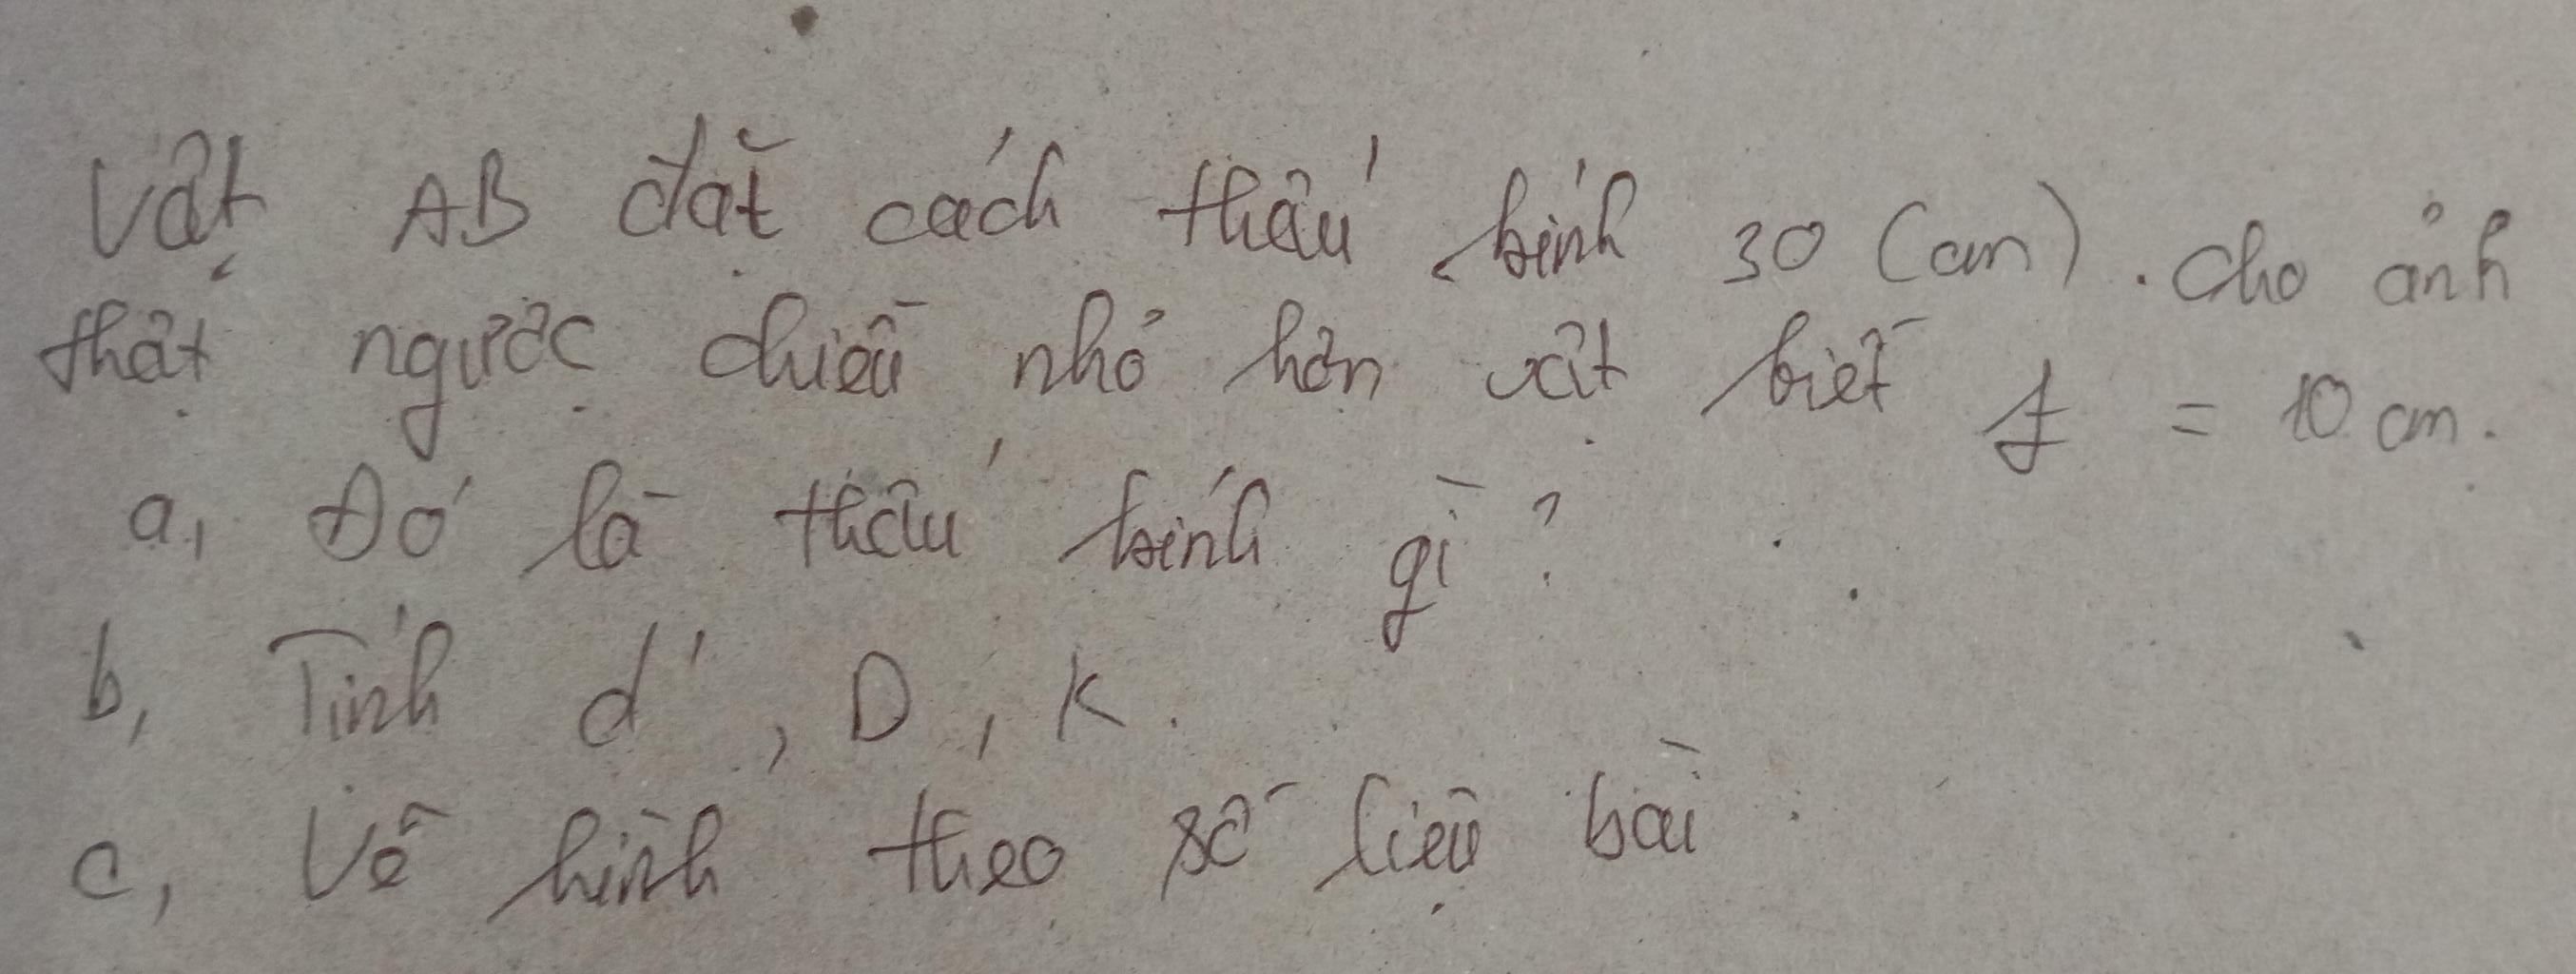 Vật AB đặt cách thấu kính 30 (cm). Cho ảnh
thật ngược chiều nhỏ hơn vật biết f = 10 cm.
a, Đó là thấu kính gì?
b, Tính d', D, K.
c, Vẽ hình theo số liệu bài.